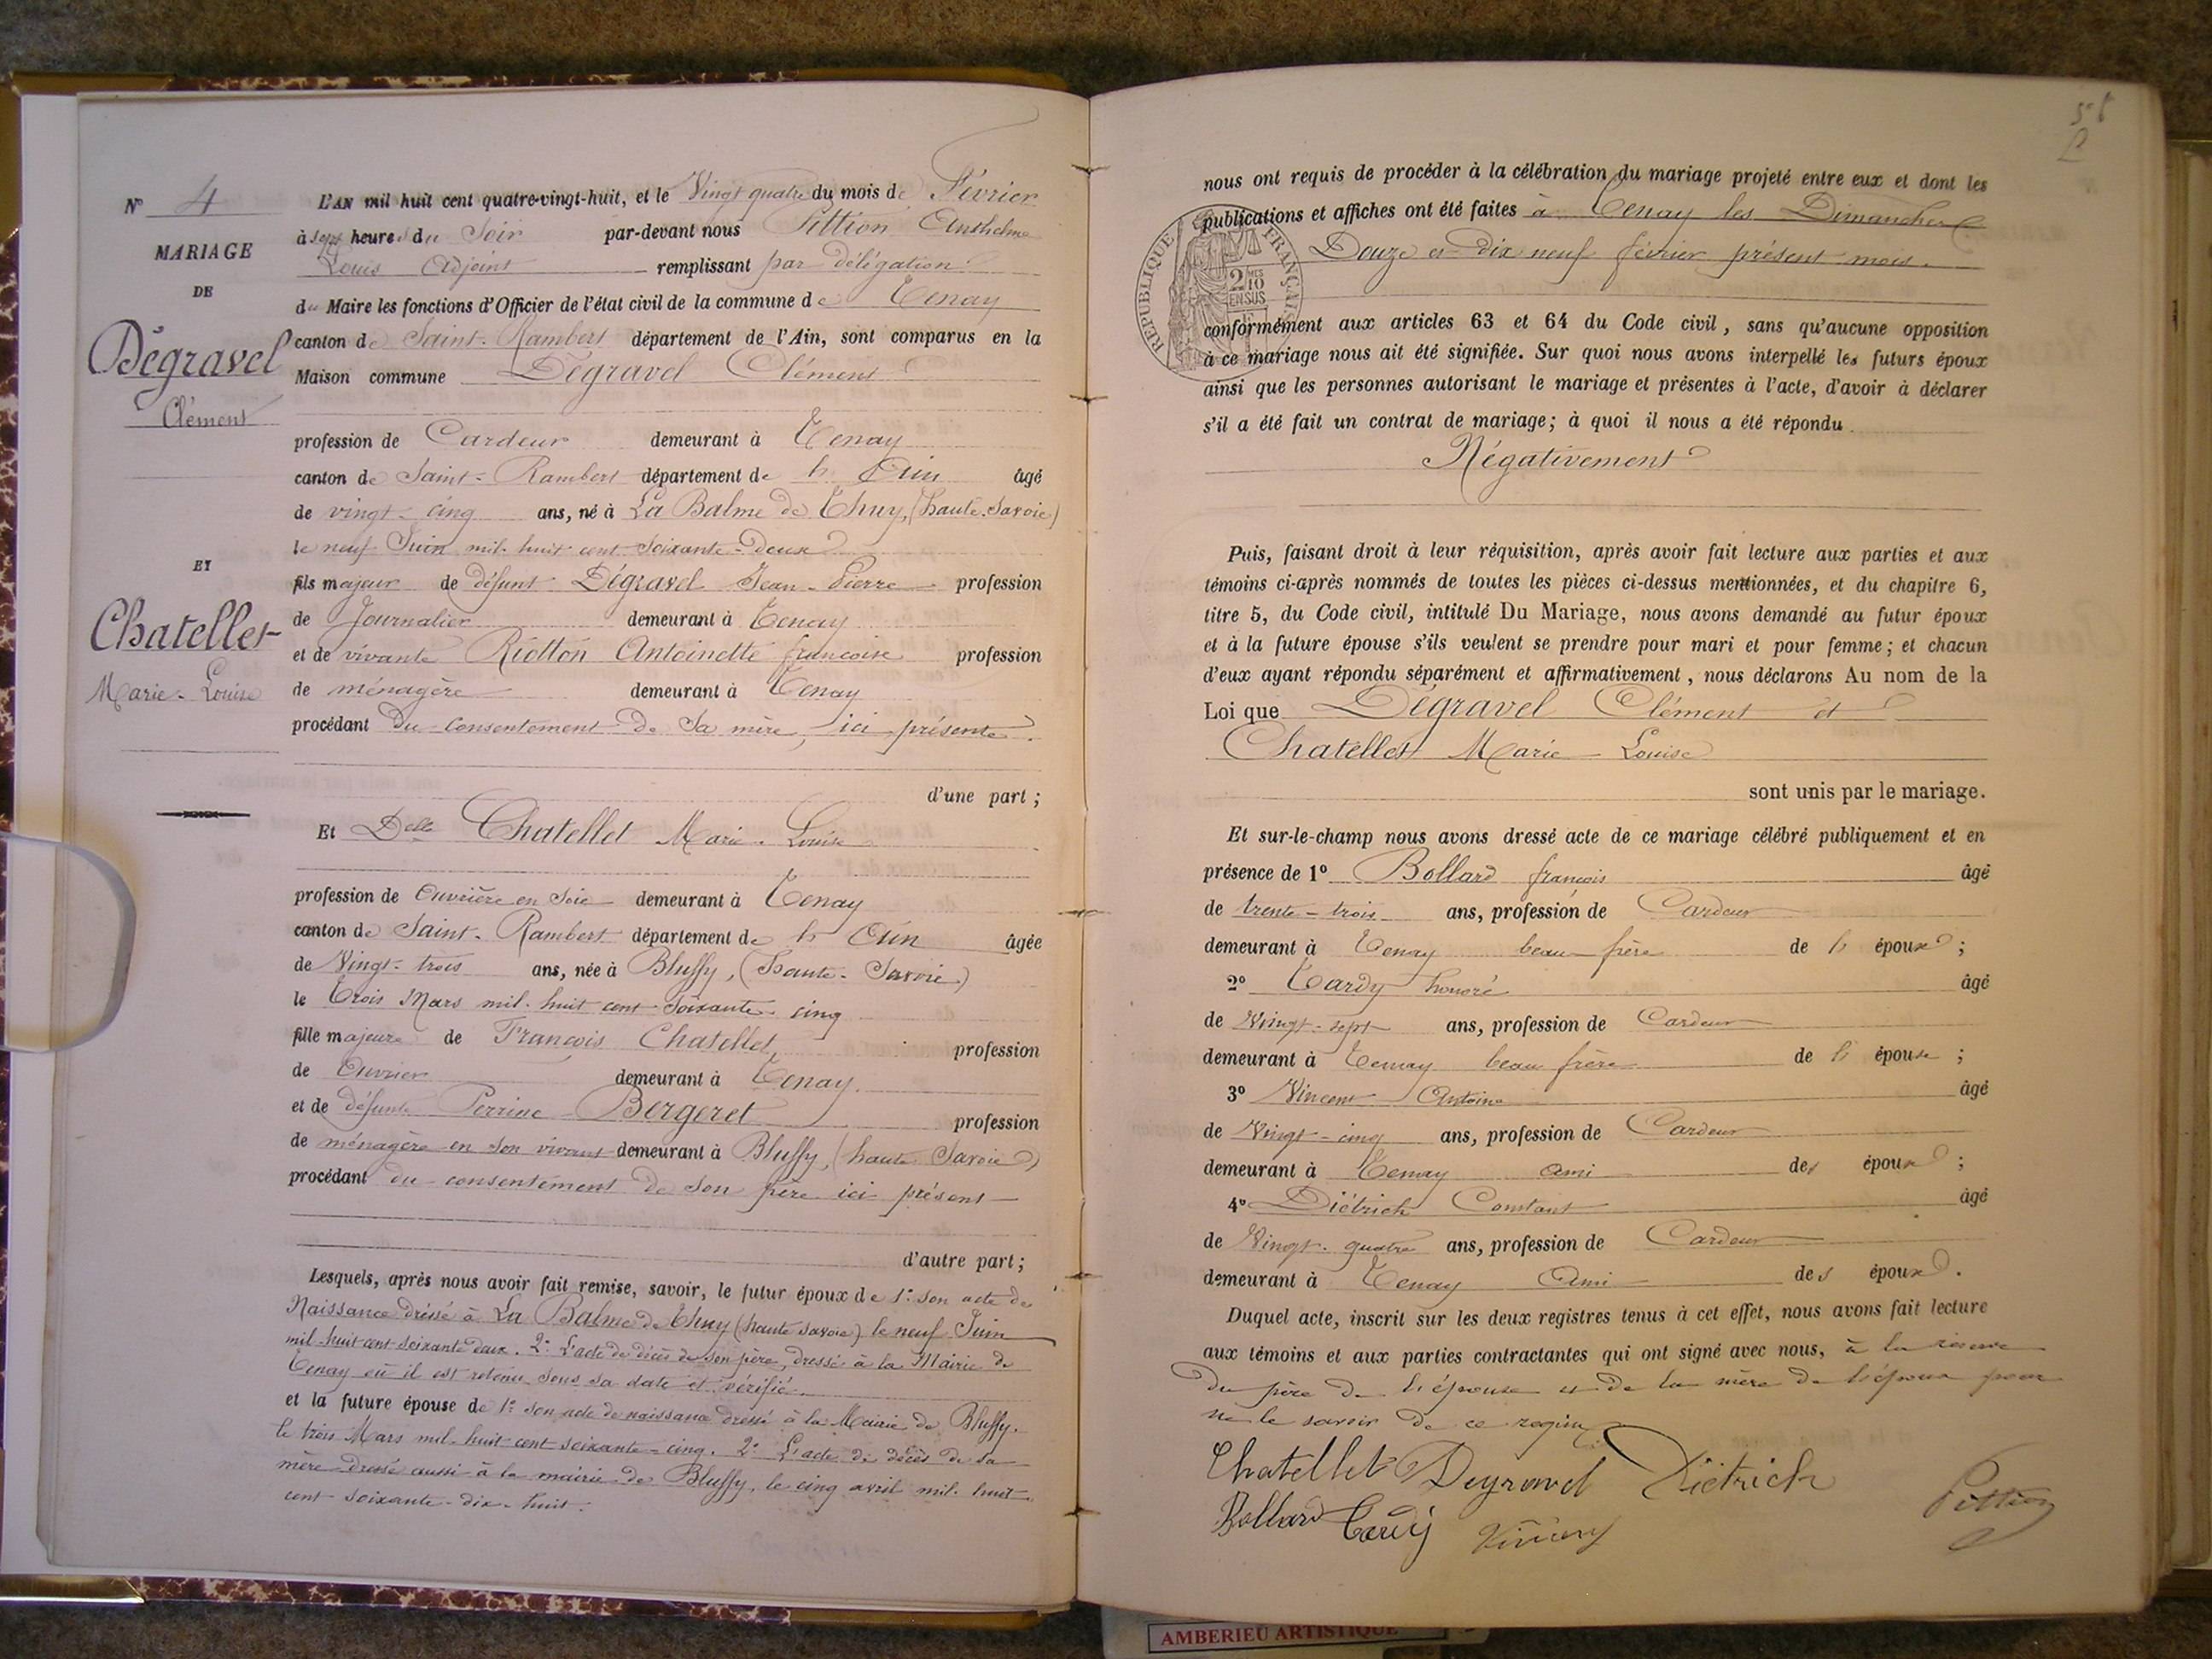 N° 4
MARIAGE
DE
Dégravel
Clément
ET
Chatellet
Marie-Louise
L'AN mil huit cent quatre-vingt-huit, et le Vingt quatre du mois de Février
à sept heures du Soir par-devant nous Pittion Anthelme
Louis Adjoint remplissant par délégation
du Maire les fonctions d'Officier de l'état civil de la commune de Tenay
canton de Saint-Rambert département de l'Ain, sont comparus en la
Maison commune Dégravel Clément
profession de Cardeur demeurant à Tenay
canton de Saint-Rambert département de l' Ain âgé
de vingt-cinq ans, né à La Balme de Thuy, (Haute-Savoie)
le neuf Juin mil-huit cent soixante-Deux
fils majeur de défunt Dégravel Jean-Pierre profession
de Journalier demeurant à Tenay
et de vivante Riotton Antoinette françoise profession
de ménagère demeurant à Tenay
procédant du consentement de Sa mère, ici présente.
d'une part ;
Et Delle Chatellet Marie-Louise
profession de Ouvrière en Soie demeurant à Tenay
canton de Saint-Rambert département de l' Ain âgée
de Vingt-trois ans, née à Bluffy, (Haute-Savoie)
le Trois Mars mil-huit cent-soixante-cinq
fille majeure de François Chatellet, profession
de Ouvrier demeurant à Tenay.
et de défunte Perrine Bergeret profession
de ménagère en son vivant demeurant à Bluffy, (haute Savoie)
procédant du consentement de Son père ici présent
d'autre part ;
Lesquels, après nous avoir fait remise, savoir, le futur époux de 1° Son acte de
Naissance dressé à La Balme de Thuy (haute Savoie) le neuf Juin
mil-huit cent-soixante deux. 2° L'acte de décès de son père, dressé à la Mairie de
Tenay où il est retenu sous sa date et vérifié
et la future épouse de 1° Son acte de naissance dressé à la Mairie de Bluffy.
le trois Mars mil-huit cent soixante-cinq. 2° L'acte de décès de sa
mère dressé aussi à la mairie de Bluffy, le cinq avril mil-huit
cent-soixante-dix-huit.
58
nous ont requis de procéder à la célébration du mariage projeté entre eux et dont les
publications et affiches ont été faites à Tenay les Dimanches
Douze et dix neuf février présent mois.
RÉPUBLIQUE FRANÇAISE
2 MES 10 EN SUS
conformément aux articles 63 et 64 du Code civil, sans qu'aucune opposition
à ce mariage nous ait été signifiée. Sur quoi nous avons interpellé les futurs époux
ainsi que les personnes autorisant le mariage et présentes à l'acte, d'avoir à déclarer
s'il a été fait un contrat de mariage ; à quoi il nous a été répondu
Négativement
Puis, faisant droit à leur réquisition, après avoir fait lecture aux parties et aux
témoins ci-après nommés de toutes les pièces ci-dessus mentionnées, et du chapitre 6,
titre 5, du Code civil, intitulé Du Mariage, nous avons demandé au futur époux
et à la future épouse s'ils veulent se prendre pour mari et pour femme ; et chacun
d'eux ayant répondu séparément et affirmativement, nous déclarons Au nom de la
Loi que Dégravel Clément et
Chatellet Marie-Louise
sont unis par le mariage.
Et sur-le-champ nous avons dressé acte de ce mariage célébré publiquement et en
présence de 1° Bollard françois âgé
de trente-trois ans, profession de Cardeur
demeurant à Tenay beau frère de l' époux ;
2° Tardy honoré âgé
de Vingt-sept ans, profession de Cardeur
demeurant à Tenay beau frère de l' épouse ;
3° Vincent Antoine âgé
de Vingt-cinq ans, profession de Cardeur
demeurant à Tenay ami des époux ;
4° Diétrich Constant âgé
de Vingt-quatre ans, profession de Cardeur
demeurant à Tenay Ami des époux.
Duquel acte, inscrit sur les deux registres tenus à cet effet, nous avons fait lecture
aux témoins et aux parties contractantes qui ont signé avec nous, à la réserve
Du père de l'épouse et de la mère de l'époux pour
ne le savoir de ce requis
Chatellet Degravel Diétrich
Bollard Tardy Vincent
Pittion
AMBERIEU ARTISTIQUE